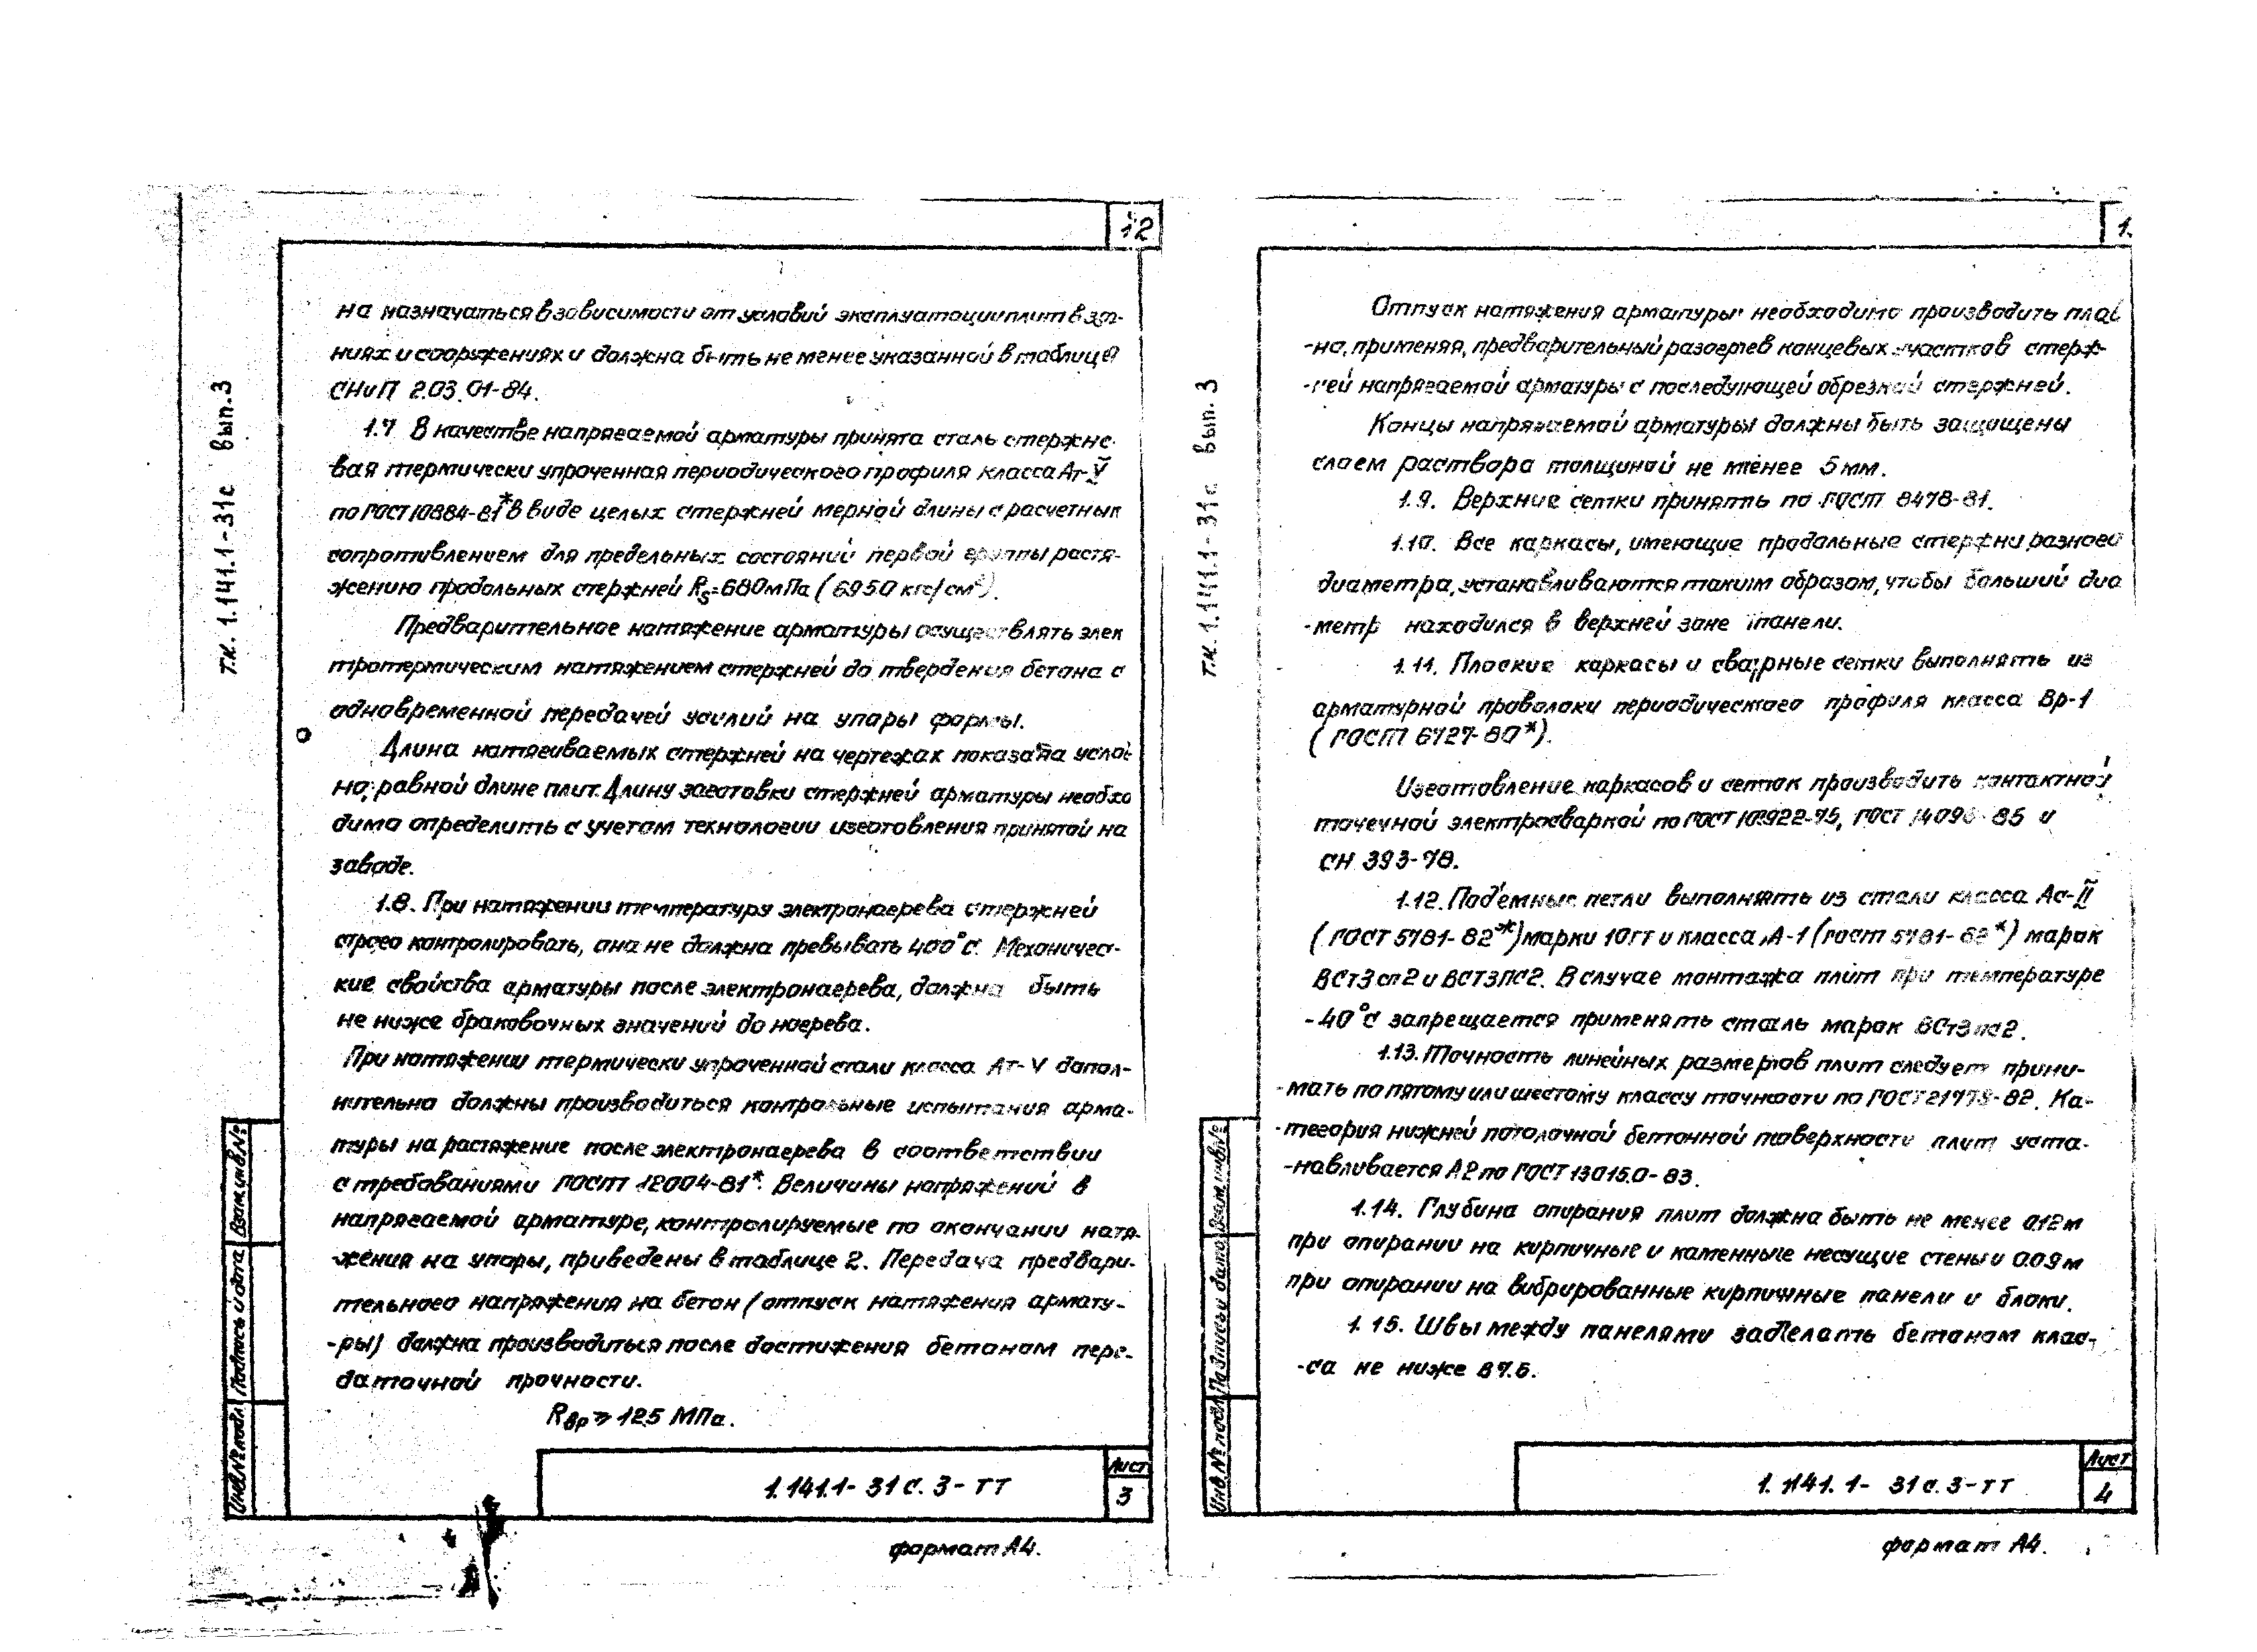 12
т.к. 1.141.1-31с вып.3
на назначаться в зависимости от условий эксплуатации плит в зда-
ниях и сооружениях и должна быть не менее указанной в таблице
СНиП 2.03.01-84.
1.7 В качестве напрягаемой арматуры принята сталь стержне-
вая термически упрочненная периодического профиля класса Ат-V
по ГОСТ 10884-81* в виде целых стержней мерной длины с расчетным
сопротивлением для предельных состояний первой группы растя-
жению продольных стержней Rs=680мПа (6950 кгс/см²).
Предварительное натяжение арматуры осуществлять элек
тротермическим натяжением стержней до твердения бетона с
одновременной передачей усилий на упоры формы.
Длина натягиваемых стержней на чертежах показана услов
но, равной длине плит. Длину заготовки стержней арматуры необхо
димо определить с учетом технологии изготовления принятой на
заводе.
1.8. При натяжении температуру электронагрева стержней
строго контролировать, она не должна превывать 400°С. Механичес-
кие свойства арматуры после электронагрева, должна быть
не ниже браковочных значений до нагрева.
При натяжении термически упрочненной стали класса Ат-V допол-
нительно должны производиться контрольные испытания арма-
туры на растяжение после электронагрева в соответствии
с требованиями ГОСТ 12004-81*. Величины напряжений в
напрягаемой арматуре, контролируемые по окончании натя-
-жения на упоры, приведены в таблице 2. Передача предвари-
тельного напряжения на бетон (отпуск натяжения армату-
-ры) должна производиться после достижения бетоном пере-
даточной прочности.
Rвр ≥ 12.5 МПа.
Инв.№ подл. Подпись и дата Взам.инв.№
1.141.1- 31с. 3- ТТ
Лист
3
формат А4.
1.
т.к. 1.141.1-31с вып. 3
Отпуск натяжения арматуры необходимо производить плав
-но, применяя, предварительный разогрев концевых участков стерж-
-ней напрягаемой арматуры с последующей обрезкой стержней.
Концы напрягаемой арматуры должны быть защищены
слоем раствора толщиной не менее 5мм.
1.9. Верхние сетки принять по ГОСТ 8478-81.
1.10. Все каркасы, имеющие продольные стержни разного
диаметра, устанавливаются таким образом, чтобы больший диа
-метр находился в верхней зоне панели.
1.11. Плоские каркасы и сварные сетки выполнять из
арматурной проволоки периодического профиля класса Вр-1
(ГОСТ 6727-80*).
Изготовление каркасов и сеток производить контактной
точечной электросваркой по ГОСТ 10922-75, ГОСТ 14098-85 и
СН 393-78.
1.12. Подъемные петли выполнять из стали класса Ас-II
(ГОСТ 5781-82*) марки 10ГТ и класса А-1 (ГОСТ 5781-82*) марок
ВСт3сп2 и ВСТ3ПС2. В случае монтажа плит при температуре
-40°С запрещается применять сталь марок ВСт3пс2.
1.13. Точность линейных размеров плит следует прини-
-мать по пятому или шестому классу точности по ГОСТ 21779-82. Ка-
-тегория нижней потолочной бетонной поверхности плит уста-
-навливается А2 по ГОСТ 13015.0-83.
1.14. Глубина опирания плит должна быть не менее 0.12м
при опирании на кирпичные и каменные несущие стены и 0.09м
при опирании на вибрированные кирпичные панели и блоки.
1.15. Швы между панелями заделать бетоном клас-
-са не ниже В7.5.
Инв.№ подл. Подпись и дата Взам.инв.№
1.141.1- 31с. 3-ТТ
Лист
4
формат А4.